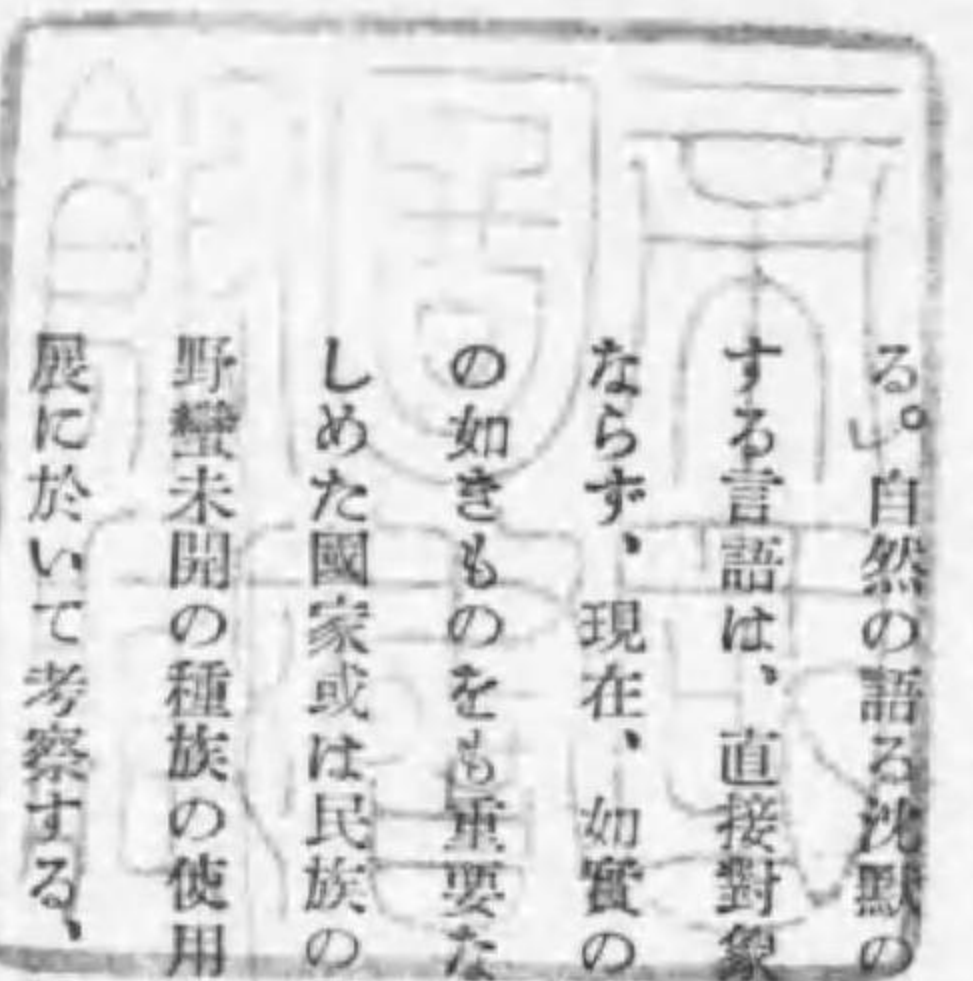 る」。自然の語る沈默の
する言語は、直接對象
ならず、現在、如實の
の如きものをも重要な
しめた國家或は民族の
野蠻未開の種族の使用
展に於いて考察する、